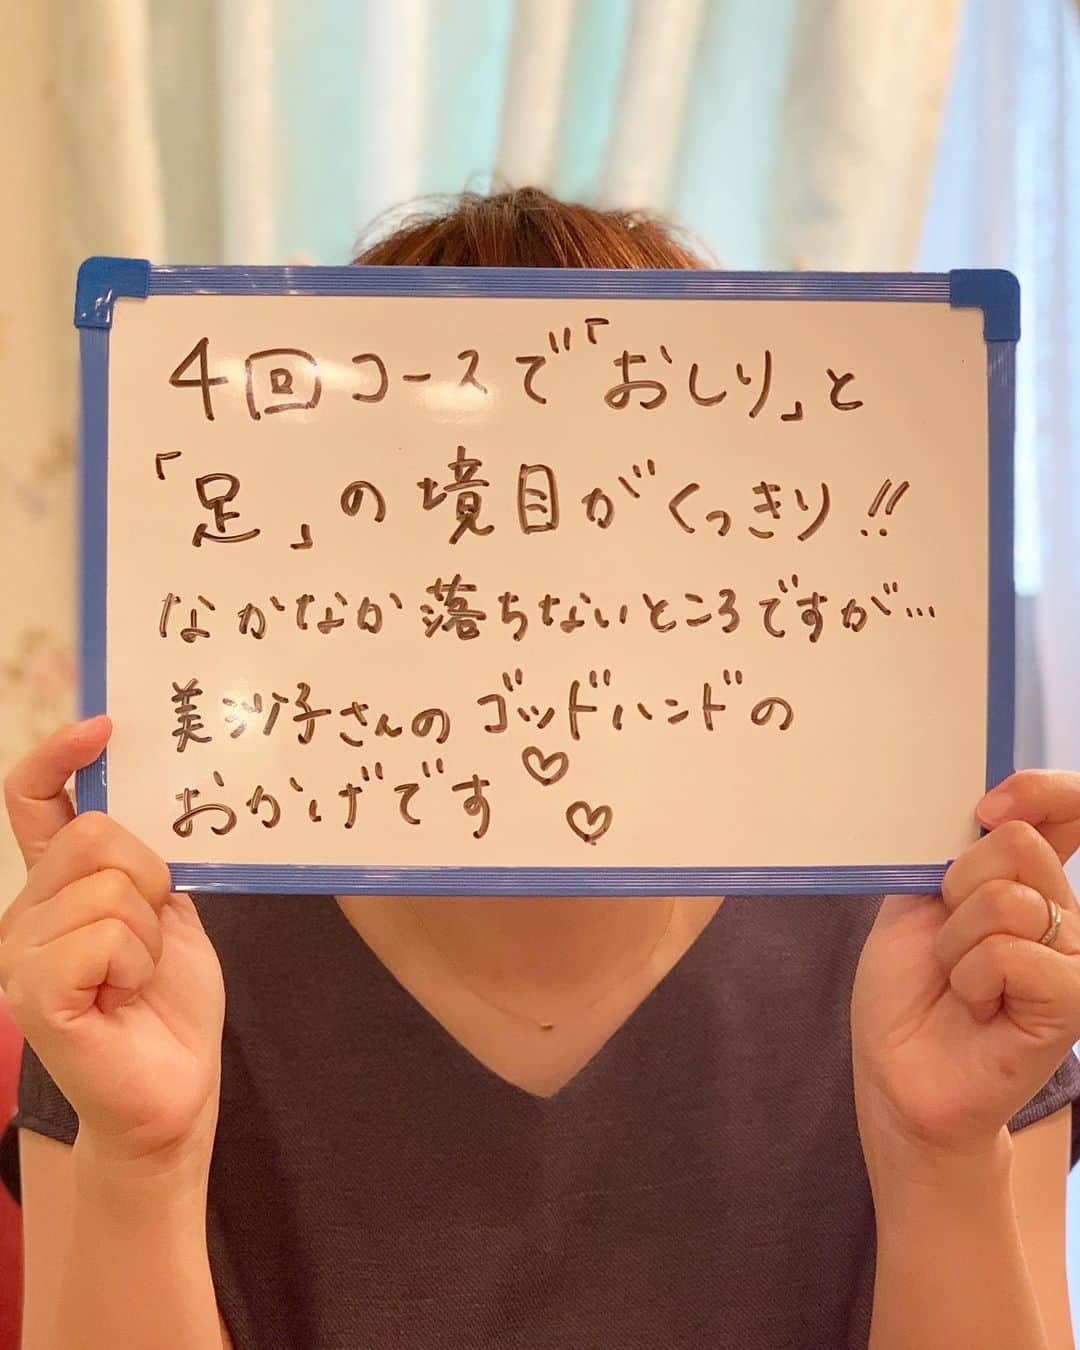 4回コースで「おしり」と
「足」の境目がくっきり!!
なかなか落ちないところですが…
美沙子さんのゴッドハンドの
おかげです♡♡